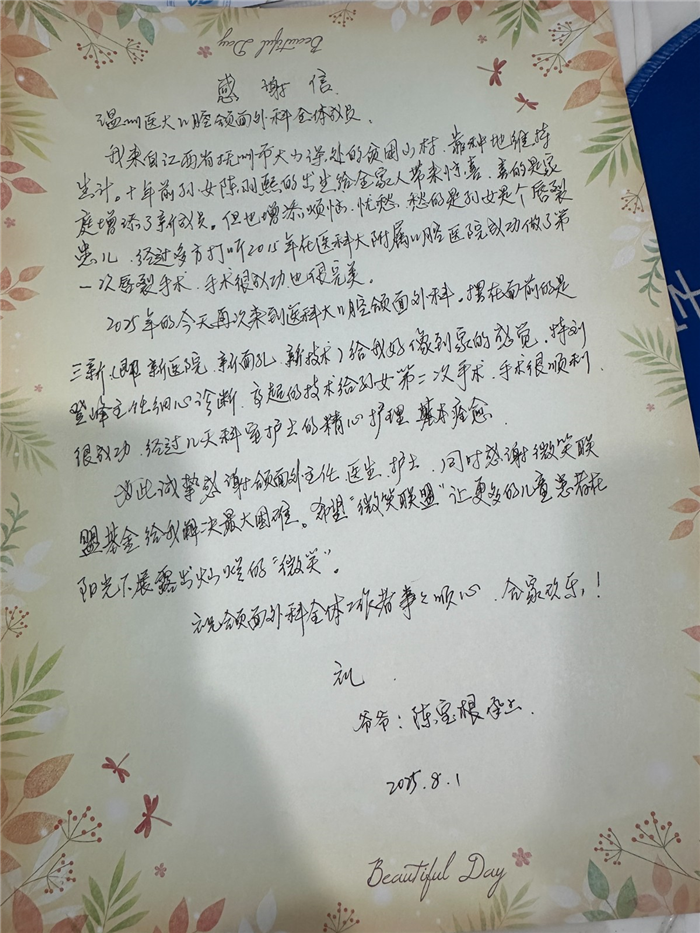 Beautiful Day
感谢信
温州医大口腔颌面外科全体成员。
我来自江西省抚州市大山深处的贫困小村,靠种地维持
生计。十年前孙女陈羽熙的出生给全家人带来惊喜,喜的是家
庭增添了新成员。但也增添烦恼、忧愁,愁的是孙女是个唇裂
患儿,经过多方打听2015年在医科大附属口腔医院成功做了第
一次唇裂手术,手术很成功也很完美。
2025年的今天再次来到医科大口腔颌面外科。摆在面前的是
三新(即新医院、新面孔、新技术)给我好像到家的感觉,特别
登峰主任细心诊断,高超的技术给孙女第二次手术,手术很顺利,
很成功,经过几天科室护士的精心护理,基本痊愈。
为此诚挚感谢颌面外主任、医生、护士,同时感谢微笑联
盟基金给我解决最大困难。希望“微笑联盟”让更多的儿童患者在
阳光下展露出灿烂的“微笑”。
祝颌面外科全体工作者事々顺心,合家欢乐!
礼
爷爷:陈宝根
2025.8.1
Beautiful Day